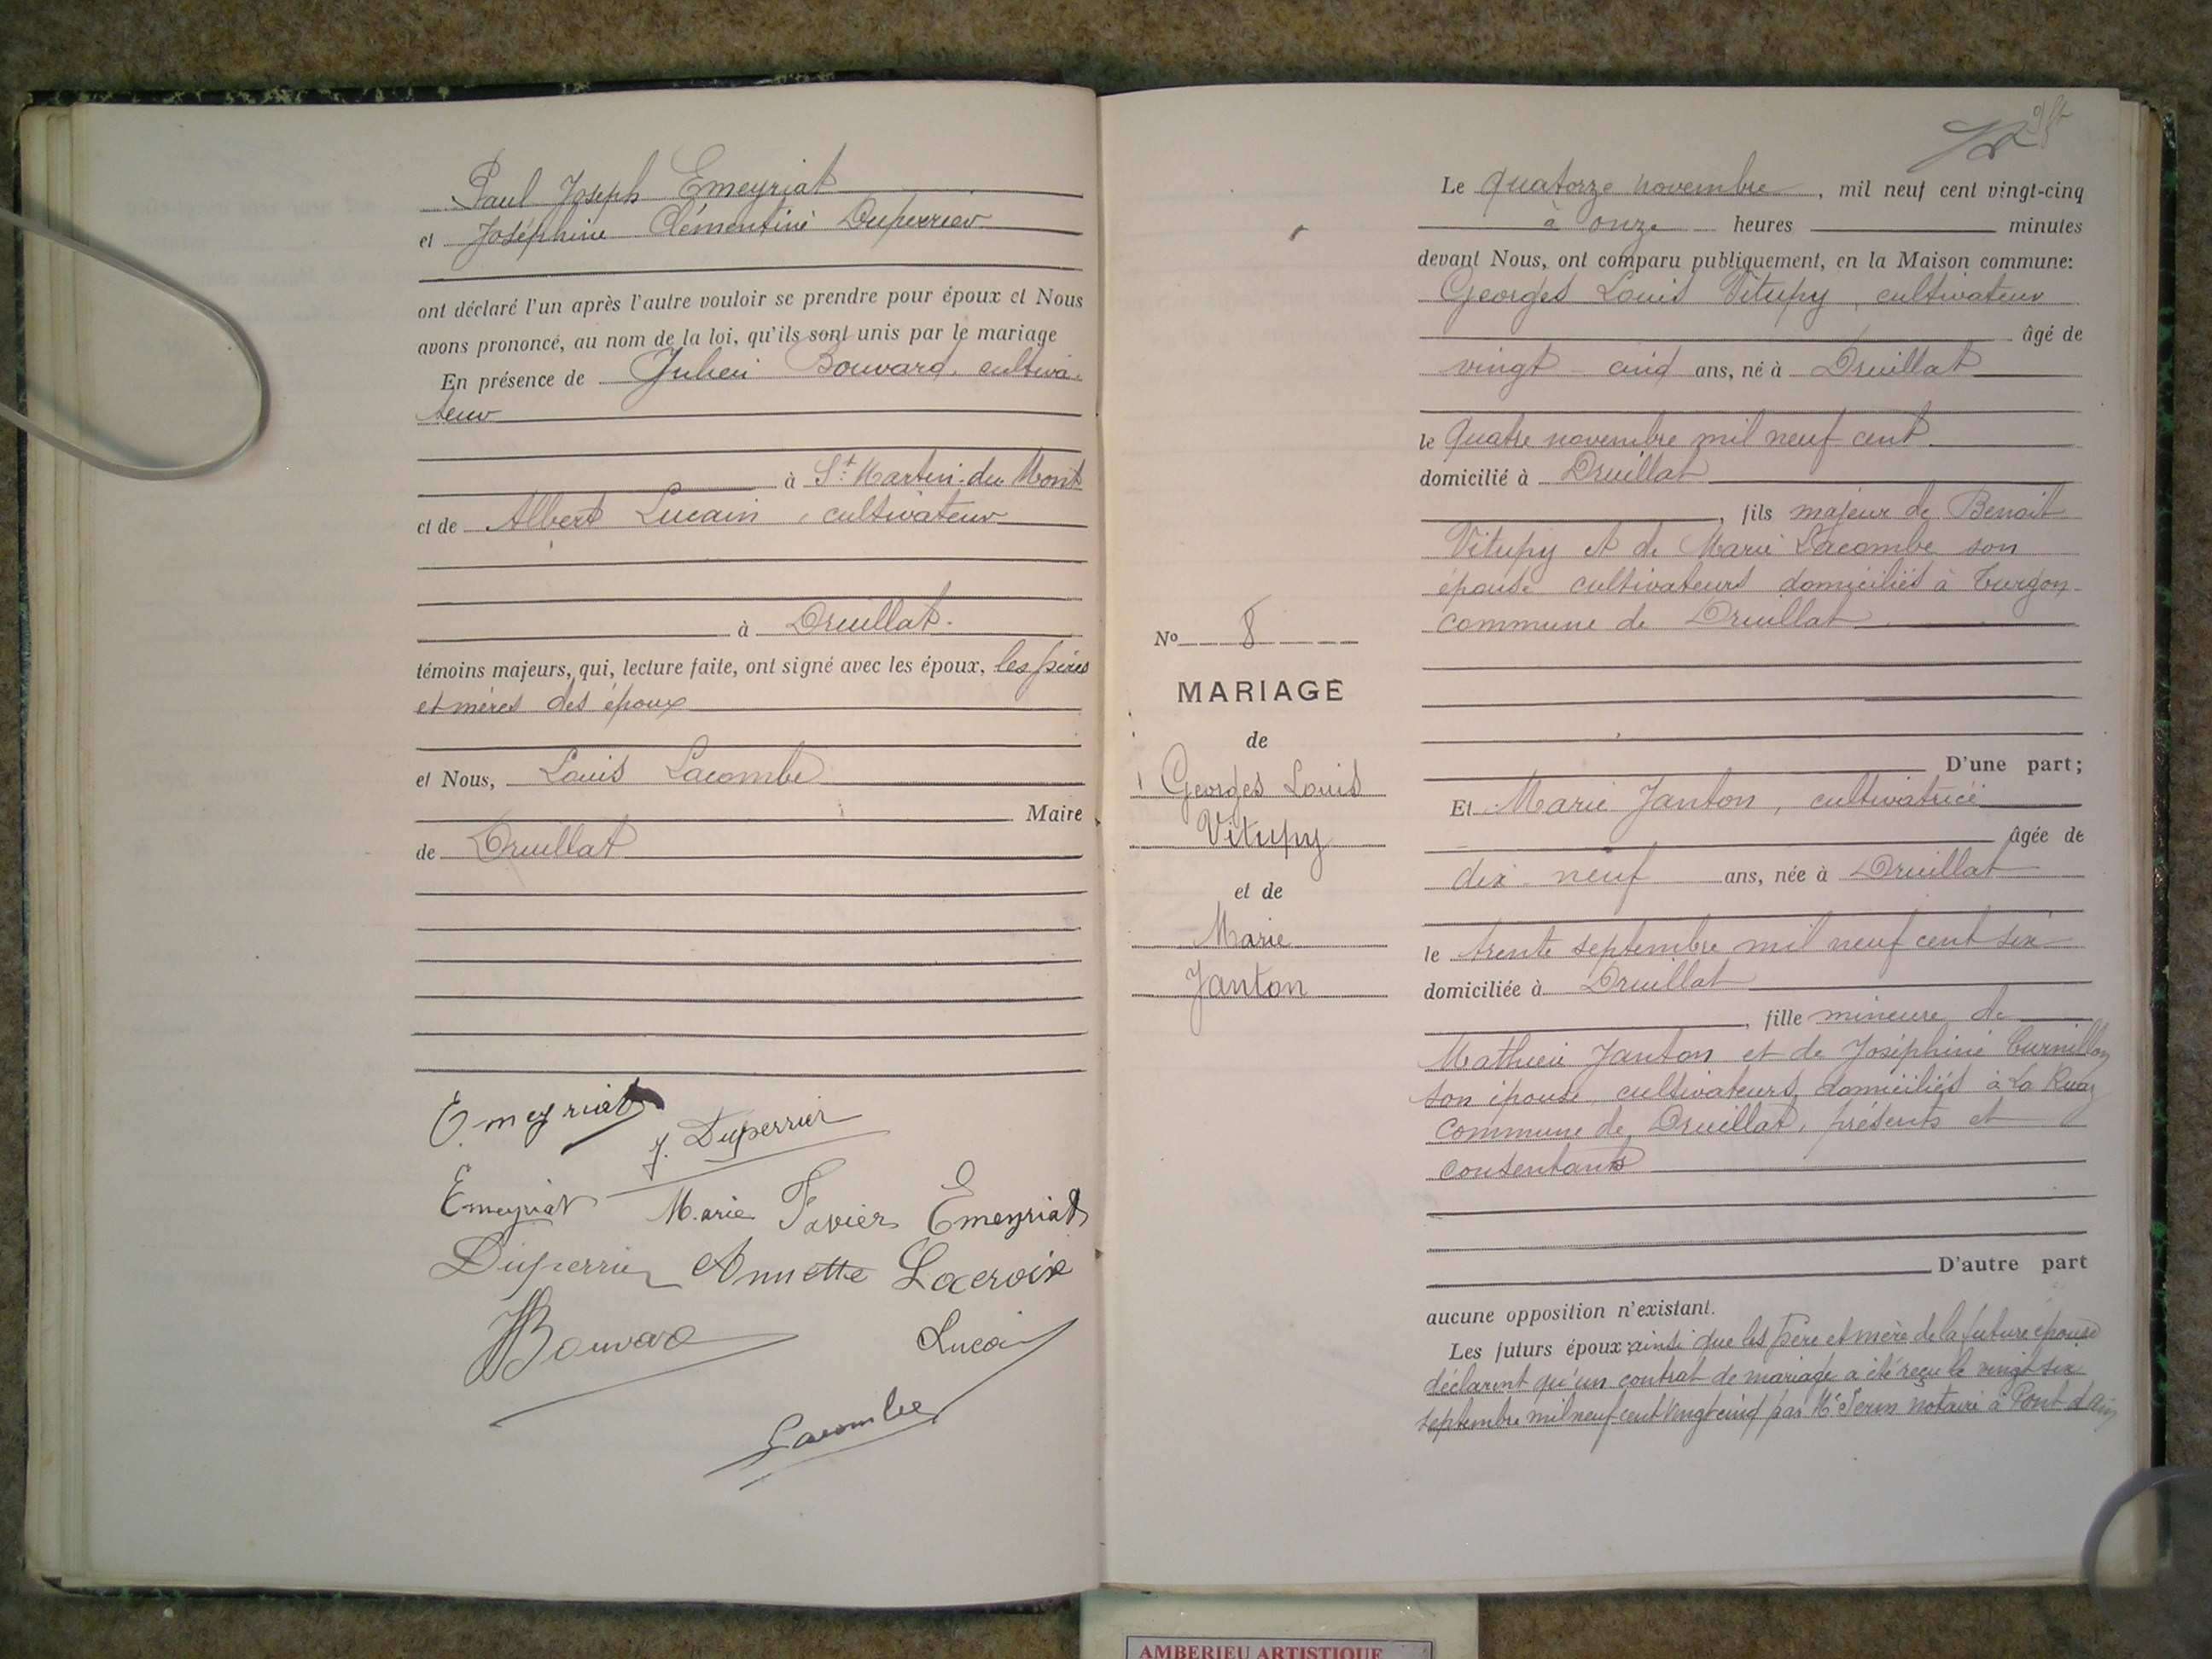 Paul Joseph Emeyriat
et Joséphine Clémentine Duperrier
ont déclaré l'un après l'autre vouloir se prendre pour époux et Nous
avons prononcé, au nom de la loi, qu'ils sont unis par le mariage
En présence de Julien Bouvard, cultiva-
teur
à St. Martin-du-Mont
et de Albert Lucain, cultivateur
à Druillat.
témoins majeurs, qui, lecture faite, ont signé avec les époux, les pères
et mères des époux
et Nous, Louis Lacombe
Maire
de Druillat
Emeyriat
J. Duperrier
Emeyriat Marie Favier Emeyriat
Duperrier Annette Lacroix
Bouvard Lucain
Lacombe
N° 8
MARIAGE
de
Georges Louis
Vitupy
et de
Marie
Janton
Le quatorze novembre, mil neuf cent vingt-cinq
à onze heures minutes
devant Nous, ont comparu publiquement, en la Maison commune:
Georges Louis Vitupy, cultivateur
âgé de
vingt-cinq ans, né à Druillat
le quatre novembre mil neuf cent
domicilié à Druillat
, fils majeur de Benoit
Vitupy et de Marie Lacombe son
épouse cultivateurs domiciliés à Turgon
commune de Druillat
D'une part;
Et Marie Janton, cultivatrice
âgée de
dix-neuf ans, née à Druillat
le trente septembre mil neuf cent six
domiciliée à Druillat
, fille mineure de
Mathieu Janton et de Joséphine Curnillon
son épouse, cultivateurs, domiciliés à La Ruaz
commune de Druillat, présents et
consentants
D'autre part
aucune opposition n'existant.
Les futurs époux ainsi que les père et mère de la future épouse
déclarent qu'un contrat de mariage a été reçu le vingt six
septembre mil neuf cent vingt cinq par Me notaire à Pont d'Ain
AMBERIEU ARTISTIQUE